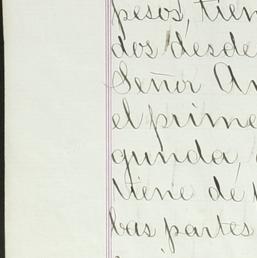 pesos, tien
dos desde
Señor An
el prime
gunda,
tiene de
bas partes